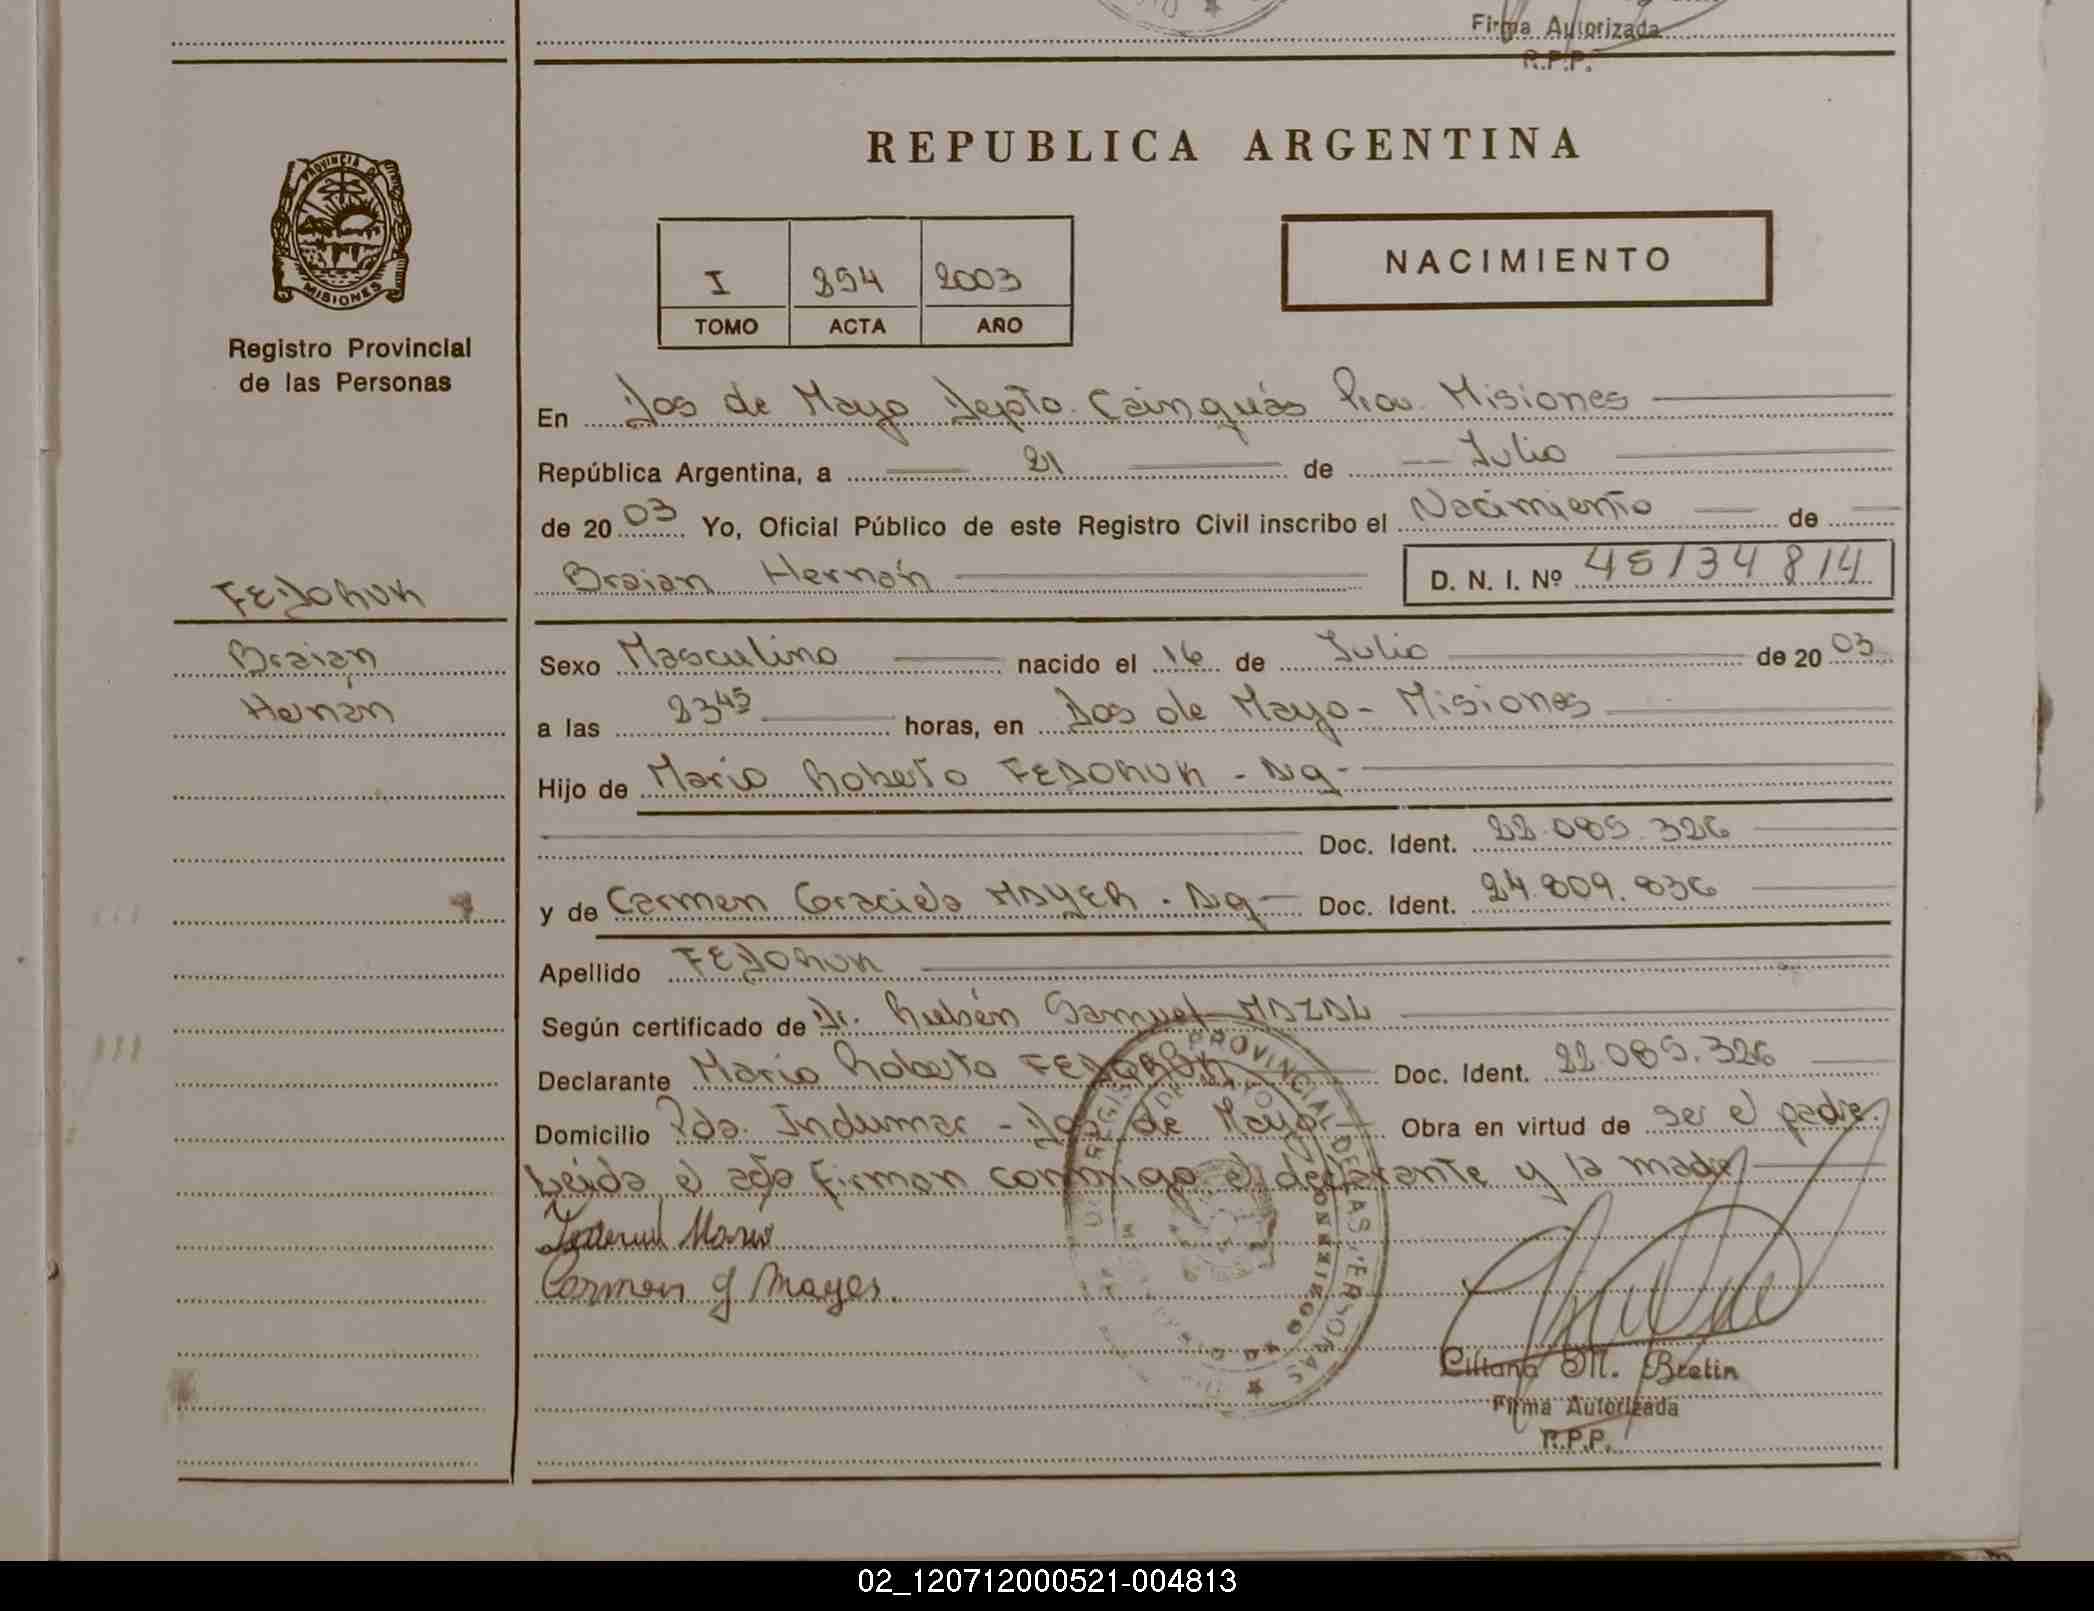 Firma Autorizada
R.P.P.
PROVINCIA DE
MISIONES
Registro Provincial
de las Personas
REPUBLICA ARGENTINA
NACIMIENTO
I 294 2003
TOMO ACTA AÑO
En Dos de Mayo Depto. Cainguás Prov. Misiones
República Argentina, a 21 de Julio
de 2003 Yo, Oficial Público de este Registro Civil inscribo el Nacimiento de
Braian Hernán D. N. I. Nº 45134814
FEDORUK
Braian
Hernán
Sexo Masculino nacido el 16 de Julio de 2003
a las 23 45 horas, en Dos de Mayo - Misiones
Hijo de Mario Roberto FEDORUK - Arg -
Doc. Ident. 22.085.326
y de Carmen Graciela MAYER - Arg - Doc. Ident. 24.809.836
Apellido FEDORUK
Según certificado de Dr. Rubén Samuel MAZAL
Declarante Mario Roberto FEDORUK Doc. Ident. 22.085.326
Domicilio Pda. Indumar - Dos de Mayo - Obra en virtud de ser el padre.
Leida el acta firman conmigo el declarante y la madre
Fedoruk Mario
Carmen G Mayer.
PROVINCIAL DE LAS PERSONAS
M. Bretin
Firma Autorizada
R.P.P.
02_120712000521-004813